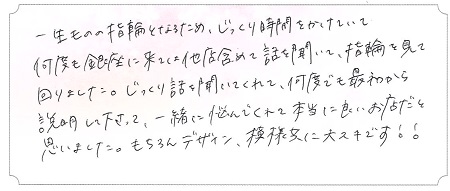 一生ものの指輪となるため、じっくり時間をかけていて
何度も銀座に来ては他店含めて話を聞いて、指輪を見て
回りました。じっくり話を聞いてくれて、何度でも最初から
説明して下さって、一緒に悩んでくれて本当に良いお店だと
思いました。もちろんデザイン、模様共に大スキです!!